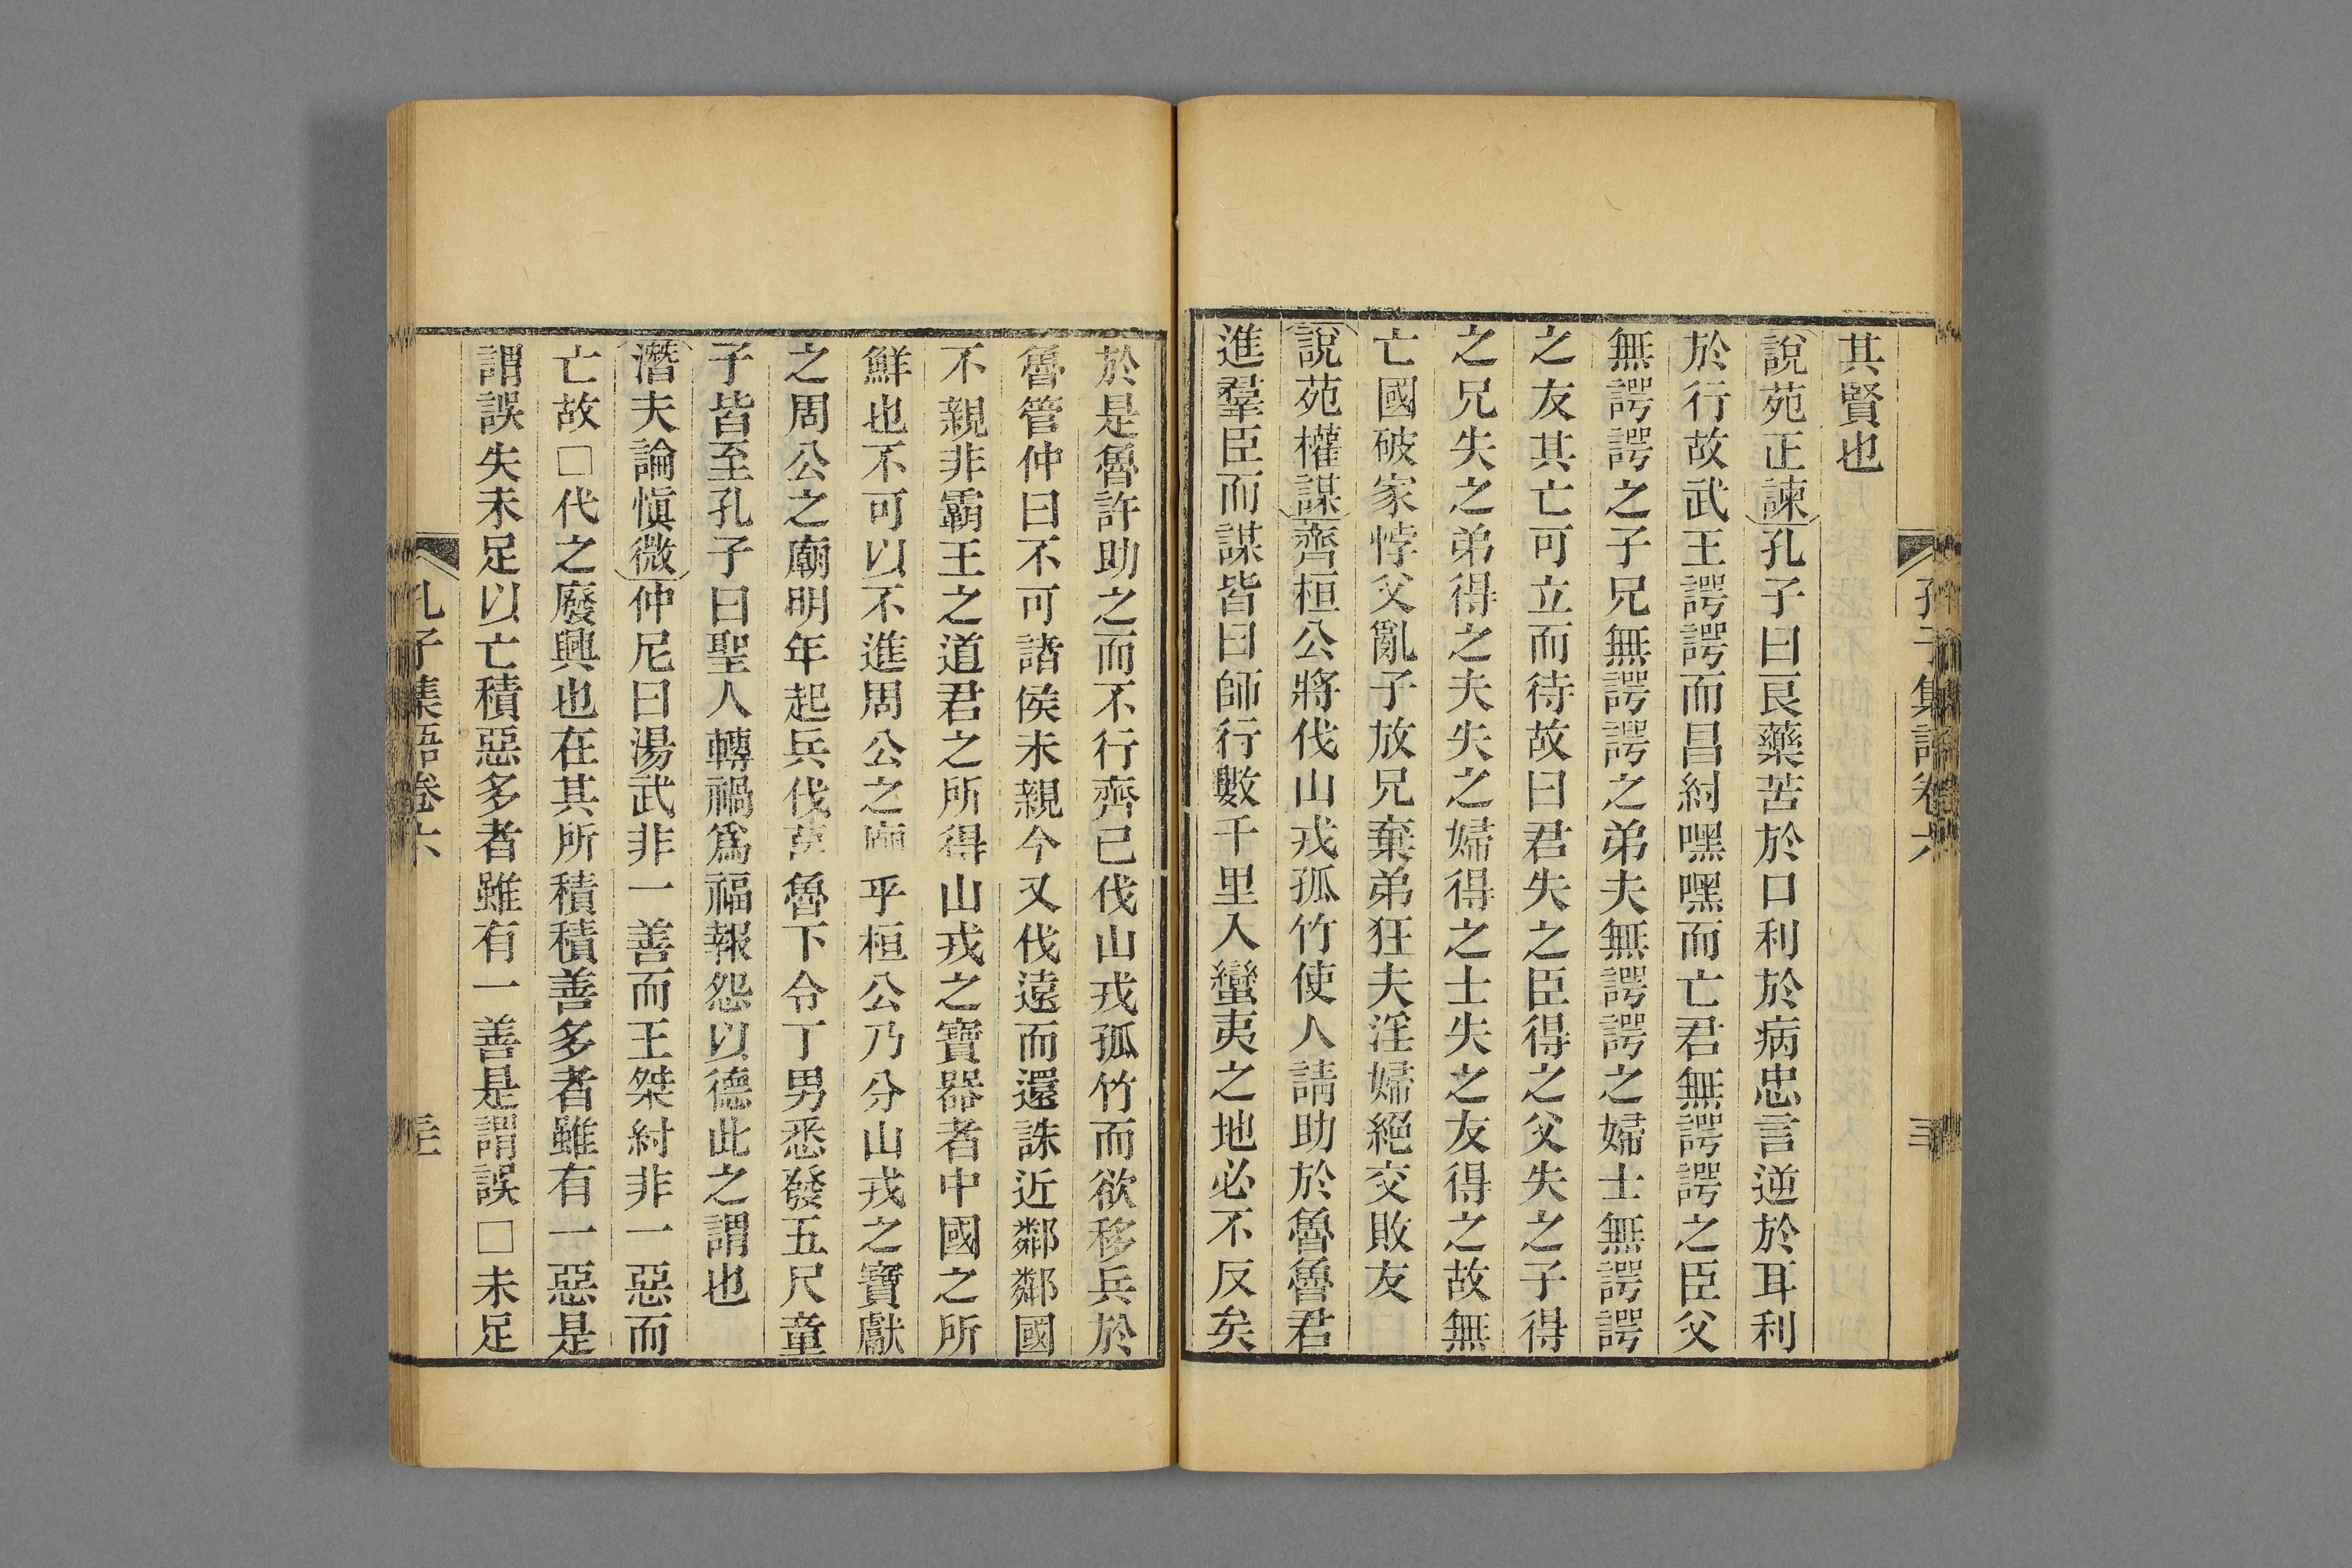 其賢也
說苑正諫孔子曰良藥苦於口利於病忠言逆於耳利
於行故武王諤諤而昌紂嘿嘿而亡君無諤諤之臣父
無諤諤之子兄無諤諤之弟夫無諤諤之婦士無諤諤
之友其亡可立而待故曰君失之臣得之父失之子得
之兄失之弟得之夫失之婦得之士失之友得之故無
亡國破家悖父亂子放兄棄弟狂夫淫婦絕交敗友
說苑權謀齊桓公將伐山戎孤竹使人請助於魯魯君
進羣臣而謀皆曰師行數千里入蠻夷之地必不反矣
於是魯許助之而不行齊已伐山戎孤竹而欲移兵於
魯管仲曰不可諸侯未親今又伐遠而還誅近鄰鄰國
不親非霸王之道君之所得山戎之寶器者中國之所
鮮也不可以不進周公之廟乎桓公乃分山戎之寶獻
之周公之廟明年起兵伐莒魯下令丁男悉發五尺童
子皆至孔子曰聖人轉禍爲福報怨以德此之謂也
潛夫論愼微仲尼曰湯武非一善而王桀紂非一惡而
亡故□代之廢興也在其所積積善多者雖有一惡是
謂誤失未足以亡積惡多者雖有一善是謂誤□未足
孔子集語卷六